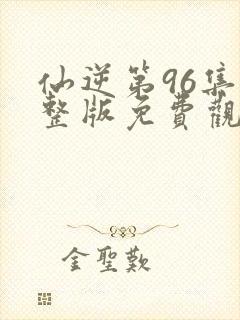 仙逆第96集
整版免費觀
金聖歎